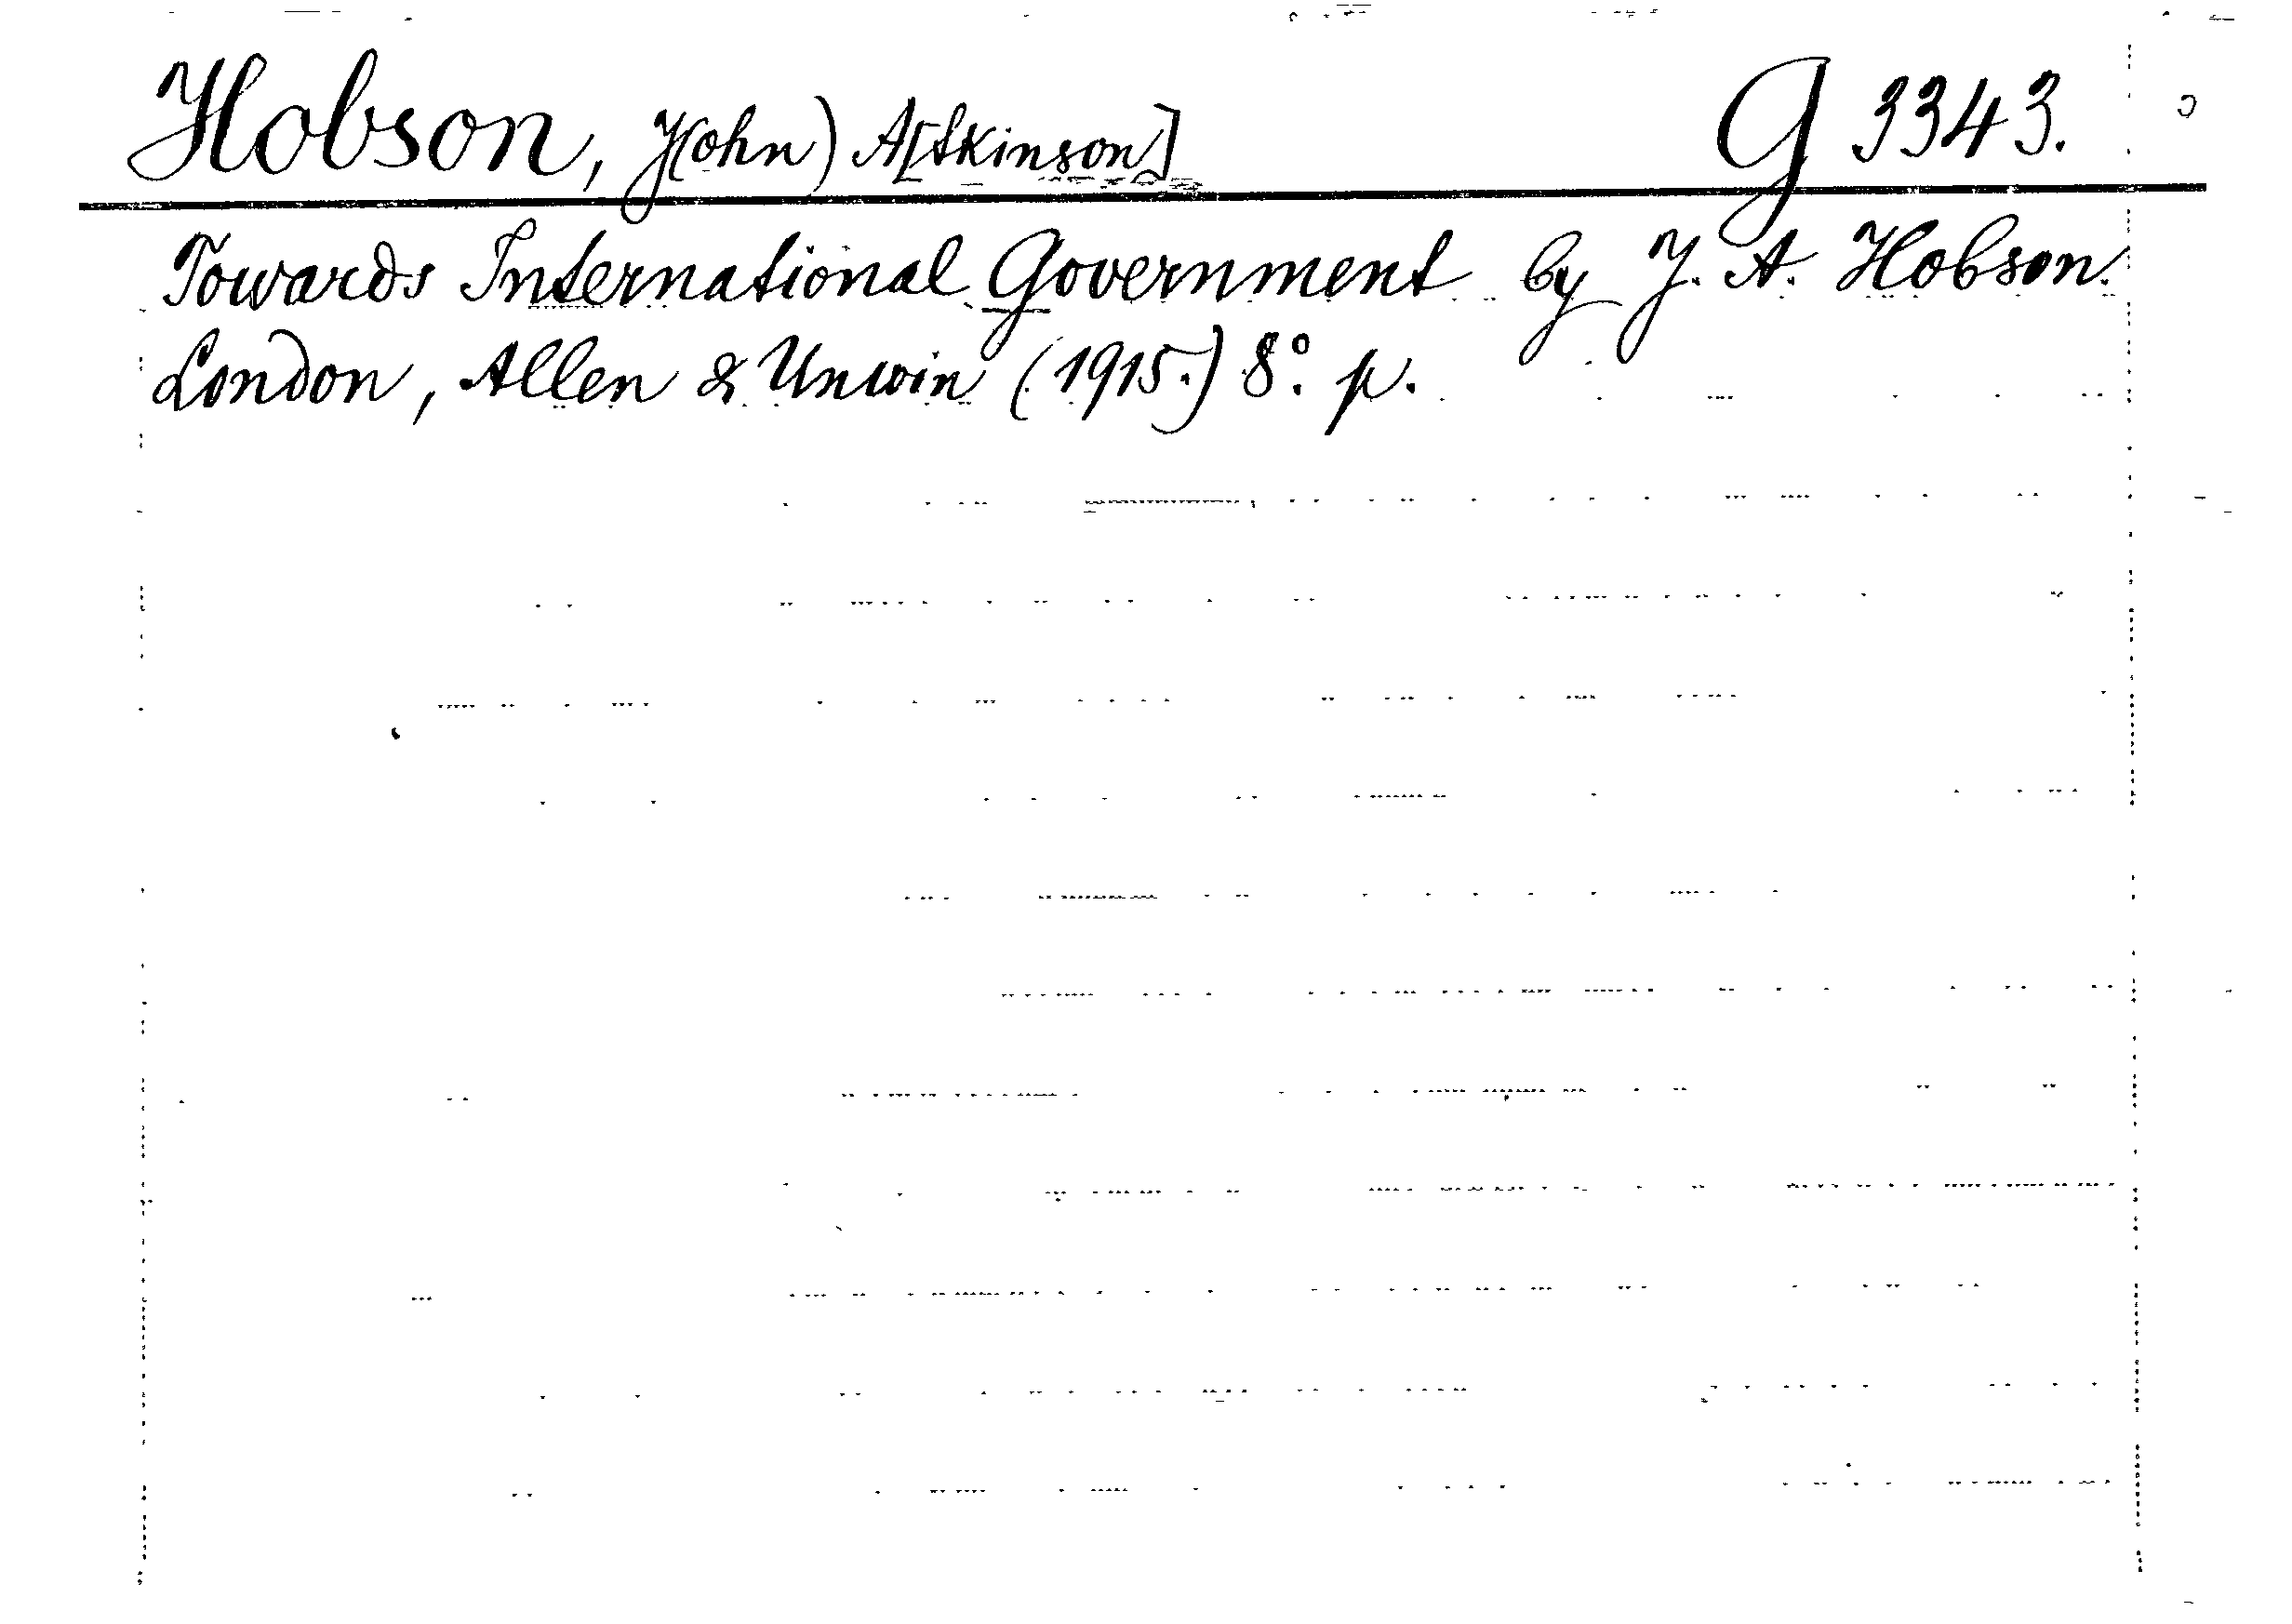 Hobson, J(ohn) A[tkinson] G 3343.
Towards International Government by J. A. Hobson.
London, Allen & Unwin (1915.) 8°. p.